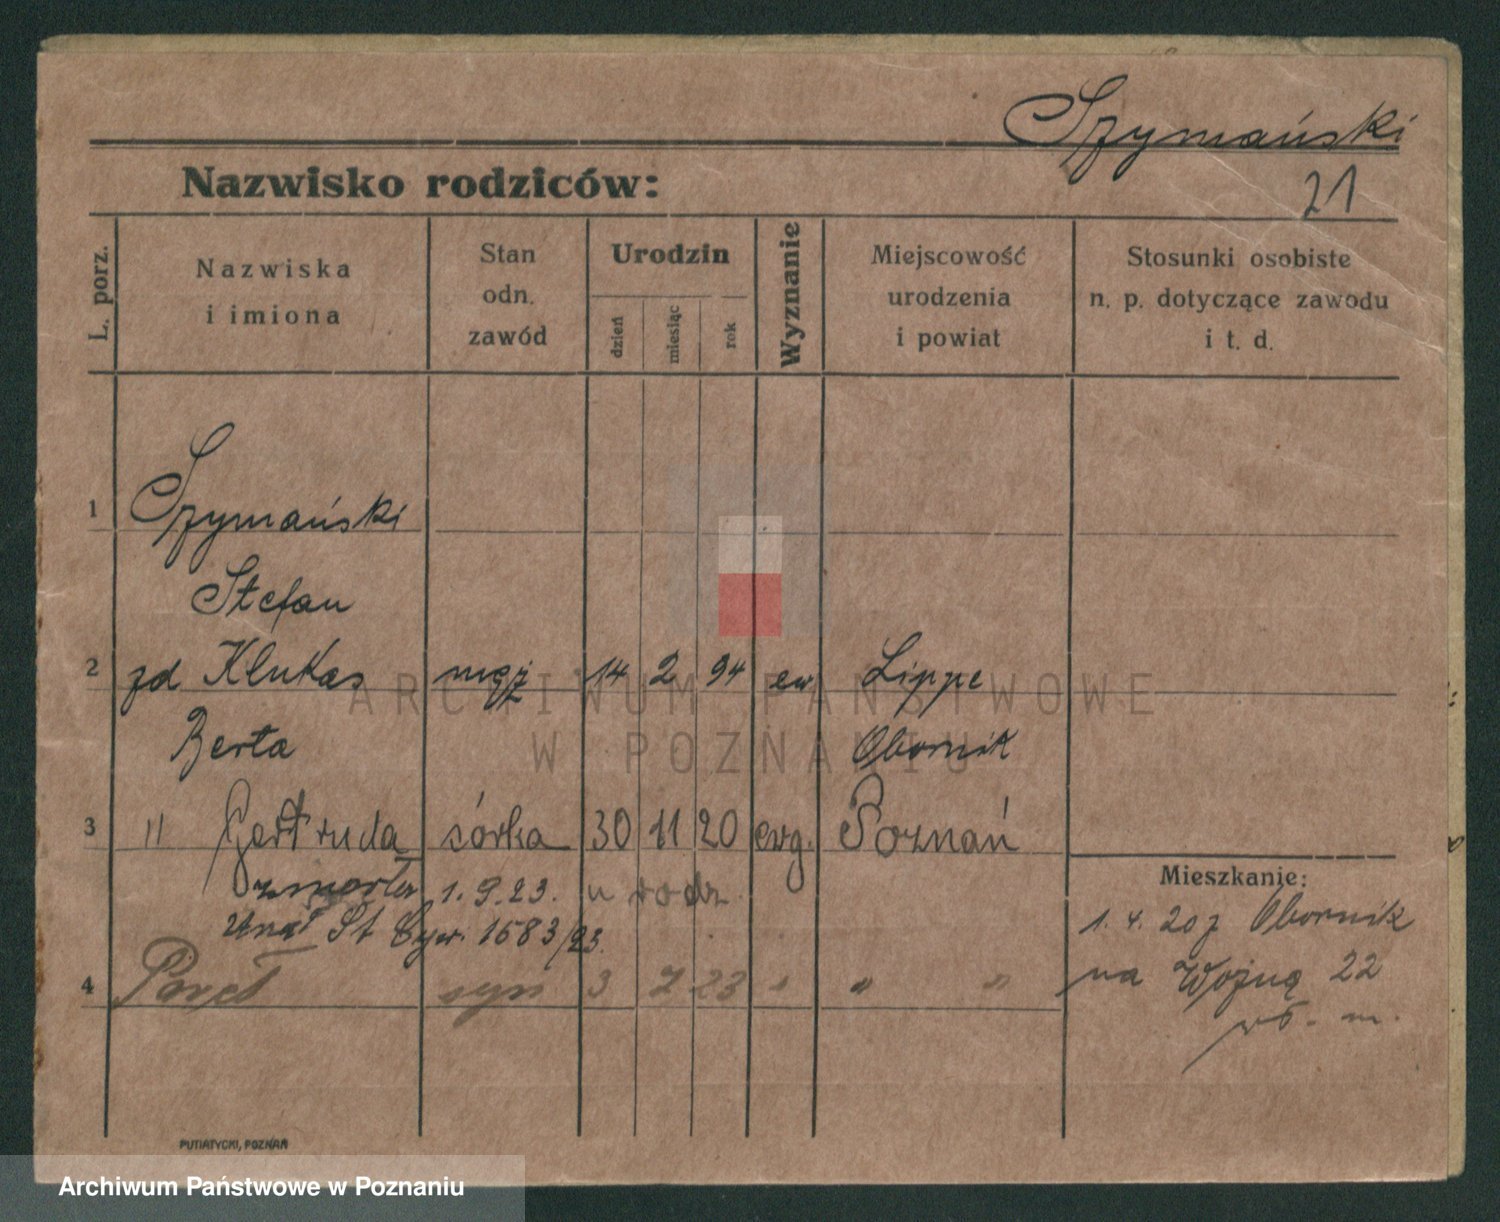 Szymański
Nazwisko rodziców:
21
L. porz.
Nazwiska
i imiona
Stan
odn.
zawód
Urodzin
dzień
miesiąc
rok
Wyznanie
Miejscowość
urodzenia
i powiat
Stosunki osobiste
n. p. dotyczące zawodu
i t. d.
1 Szymański
Stefan
2 zd Klukas mąż 14 2 94 ew Lippe
Berta Obornik
3 " Gertruda córka 30 11 20 ewg. Poznań
zmarła 1.9.23. u rodz.
St Cyw. 1683/23.
4 syn 3 7 23 " " "
Mieszkanie:
1.4.20 z Obornik
na Woźną 22
ARCHIWUM PAŃSTWOWE
W POZNANIU
PUTIATYCKI, POZNAŃ
Archiwum Państwowe w Poznaniu